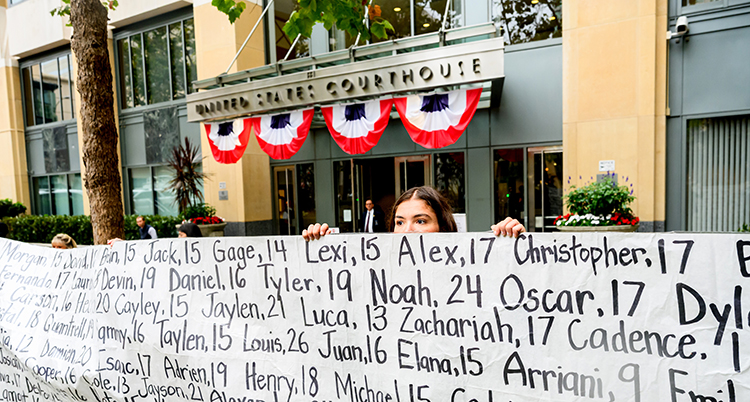 UNITED STATES COURTHOUSE
Morgan, 15 David, 17 15 Jack, 15 Gage, 14 Lexi, 15 Alex, 17 Christopher, 17
Fernando, 17 Devin, 19 Daniel, 16 Tyler, 19 Noah, 24 Oscar, 17 Dyl
Carson, 16 20 Cayley, 15 Jaylen, 21 Luca, 13 Zachariah, 17 Cadence, 1
18 16 Taylen, 15 Louis, 26 Juan, 16 Elana, 15 Arriani, 9 Emil
12 Damian, 20 Isaac, 17 Adrien, 19 Henry, 18 Michael 15
Cooper, 16 Cole, 13 Jayson, 21